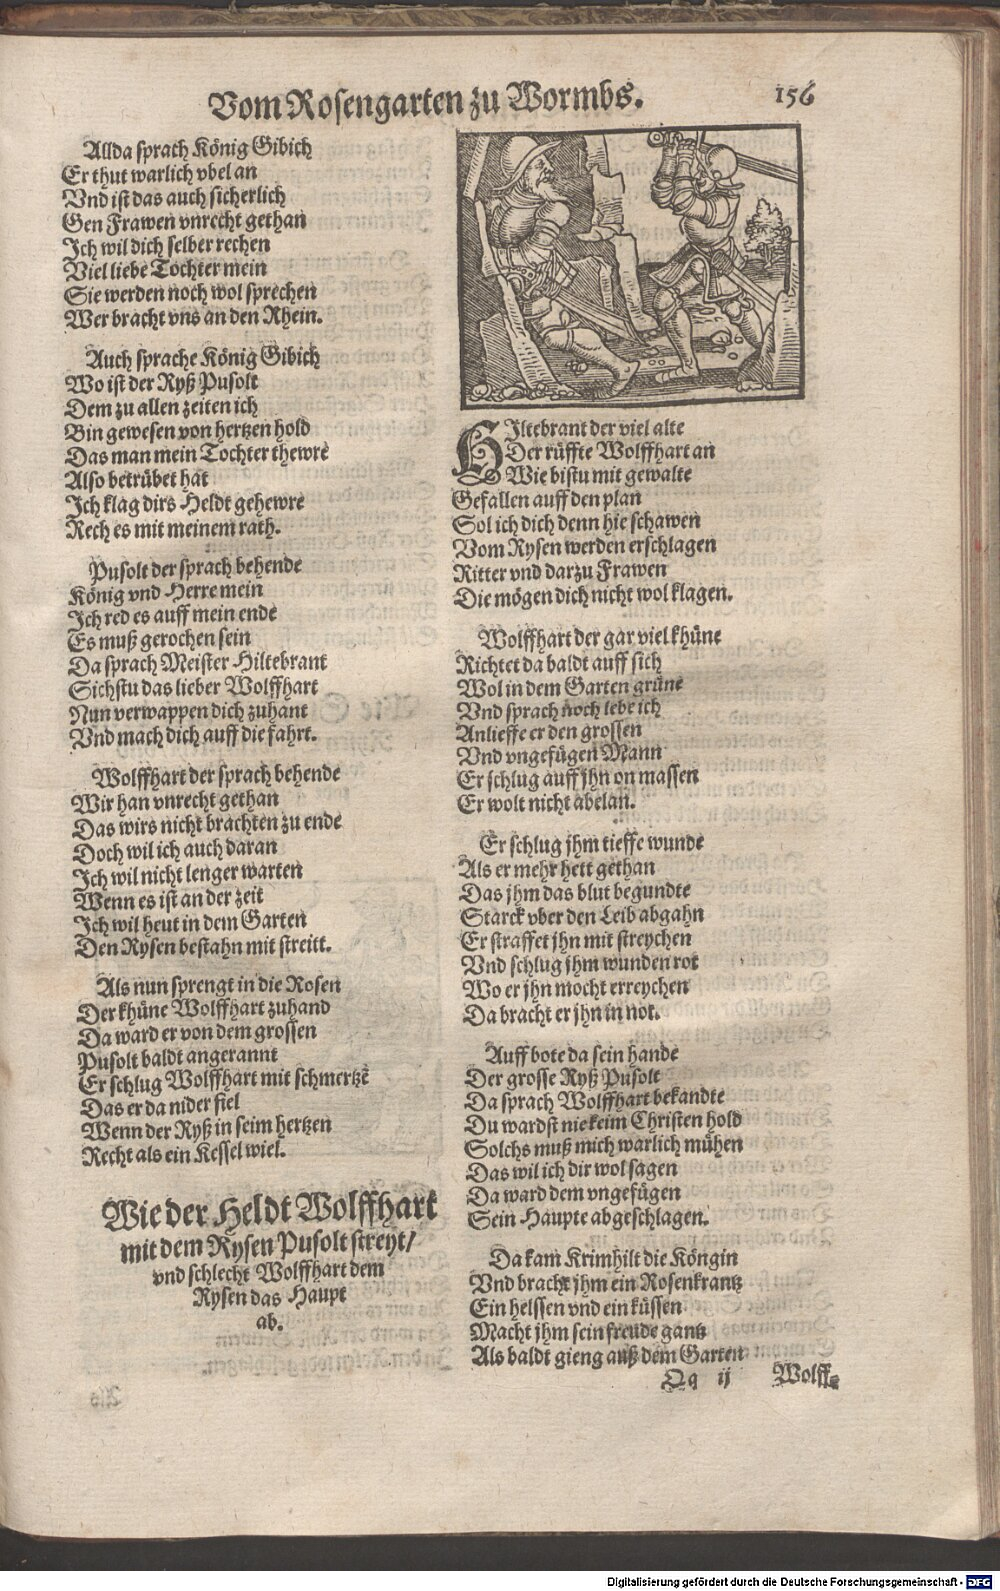 Vom Rosengarten zu Wormbs. 156
Allda sprach König Gibich
Er thut warlich vbel an
Vnd ist das auch sicherlich
Gen Frawen vnrecht gethan
Ich wil dich selber rechen
Viel liebe Tochter mein
Sie werden noch wol sprechen
Wer bracht vns an den Rhein.
Auch sprache König Gibich
Wo ist der Ryß Pusolt
Dem zu allen zeiten ich
Bin gewesen von hertzen hold
Das man mein Tochter thewre
Also betrübet hat
Ich klag dirs Heldt gehewre
Rech es mit meinem rath.
Pusolt der sprach behende
König vnd Herre mein
Ich red es auff mein ende
Es muß gerochen sein
Da sprach Meister Hiltebrant
Sichstu das lieber Wolffhart
Nun verwappen dich zuhant
Vnd mach dich auff die fahrt.
Wolffhart der sprach behende
Wir han vnrecht gethan
Das wirs nicht brachten zu ende
Doch wil ich auch daran
Ich wil nicht lenger warten
Wenn es ist an der zeit
Ich wil heut in dem Garten
Den Rysen bestahn mit streitt.
Als nun sprengt in die Rosen
Der khüne Wolffhart zuhand
Da ward er von dem grossen
Pusolt baldt angerannt
Er schlug Wolffhart mit schmertzē
Das er da nider fiel
Wenn der Ryß in seim hertzen
Recht als ein Kessel wiel.
Wie der Heldt Wolffhart
mit dem Rysen Pusolt streyt/
vnd schlecht Wolffhart dem
Rysen das Haupt
ab.
HIltebrant der viel alte
Der rüffte Wolffhart an
Wie bistu mit gewalte
Gefallen auff den plan
Sol ich dich denn hie schawen
Vom Rysen werden erschlagen
Ritter vnd darzu Frawen
Die mögen dich nicht wol klagen.
Wolffhart der gar viel khüne
Richtet da baldt auff sich
Wol in dem Garten grüne
Vnd sprach noch lebe ich
Anlieffe er den grossen
Vnd vngefügen Mann
Er schlug auff jhn on massen
Er wolt nicht abelan.
Er schlug jhm tieffe wunde
Als er mehr hett gethan
Das jhm das blut begundte
Starck vber den Leib abgahn
Er straffet jhn mit streychen
Vnd schlug jhm wunden rot
Wo er jhn mocht erreychen
Da bracht er jhn in not.
Auff bote da sein hande
Der grosse Ryß Pusolt
Da sprach Wolffhart bekandte
Du wardst nie keim Christen hold
Solchs muß mich warlich mühen
Das wil ich dir wol sagen
Da ward dem vngefügen
Sein Haupte abgeschlagen.
Da kam Krimhilt die Köngin
Vnd bracht jhm ein Rosenkrantz
Ein helssen vnd ein küssen
Macht jhm sein freude gantz
Als baldt gieng auß dem Garten
Qq ij Wolff-
Digitalisierung gefördert durch die Deutsche Forschungsgemeinschaft - DFG